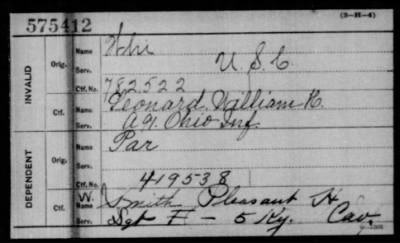 (3-H-4)
575412
INVALID
Orig.
Name Whi
Serv. U.S.C
Ctf. No. 782522
Ctf.
Name Leonard, William R.
Serv. A 91. Ohio Inf.
DEPENDENT
Orig.
Name Par
Serv.
Ctf. No. 419538
Ctf.
W.
Name Smith Pleasant H
Serv. Sgt F - 5 Ky. Cav.